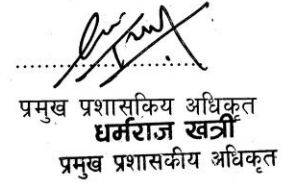 प्रमुख प्रशासकिय अधिकृत
धर्मराज खत्री
प्रमुख प्रशासकीय अधिकृत